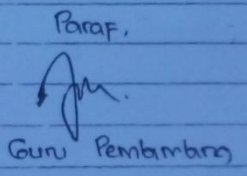 Paraf,
Guru Pembambang